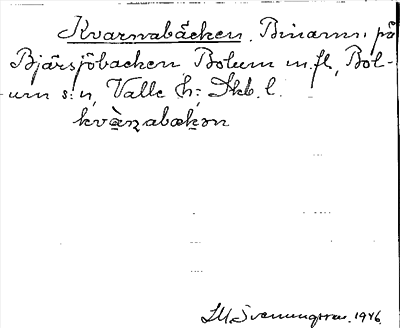 Kvarnabäcken. Binamn. på
Bjärsjöbacken Bolum m.fl., Bol-
um s:n, Valle h:; Skb. l.
kvànabækən
SM Svenungsson. 1946.